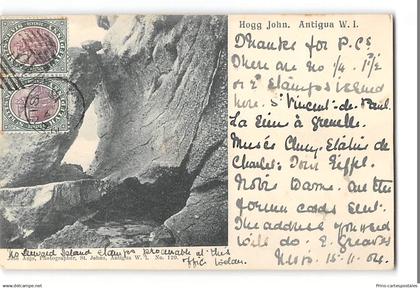 Hogg John. Antigua W. I.
Thanks for P.Cs
There are no ¼. 1½
or 2ᵈ Stamps issued
here. St Vincent-de-Paul.
La Seine à Grenelle.
Musée Cluny. Statue de
Charles. Tour Eiffel.
Notre Dame. are the
former cards sent.
The address you used
will do. E. Greaves
Nevis. 15-11-04.
No Leeward Island Stamps procurable at this
office below.
José Anjo, Photographer, St. Johns, Antigua W. I. No. 129.
delcampe.net